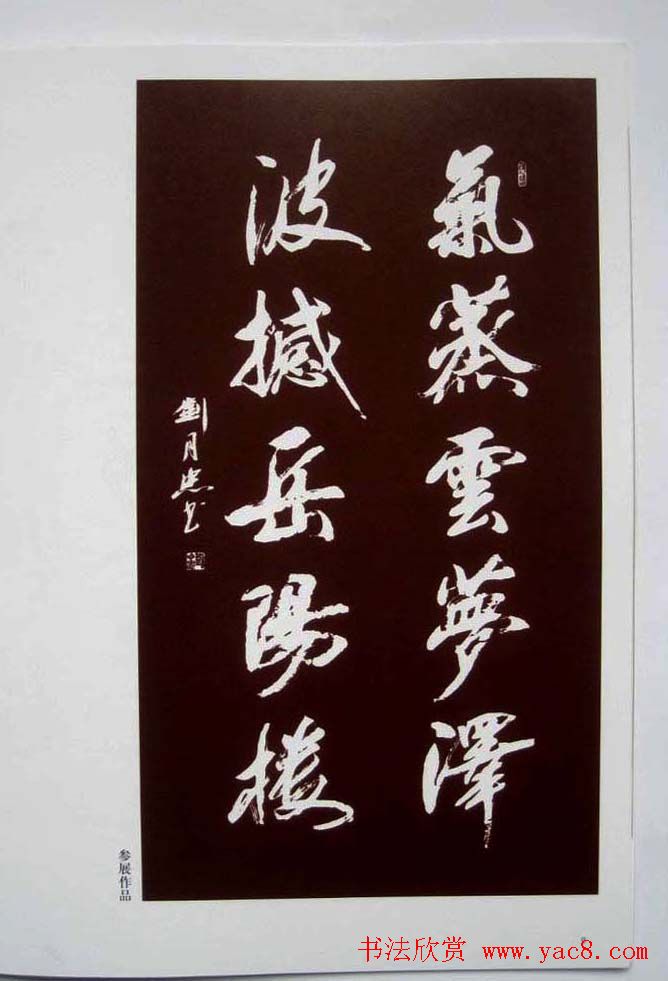 氣蒸雲夢澤
波撼岳陽楼
月忠书
参展作品
书法欣赏 www.yac8.com